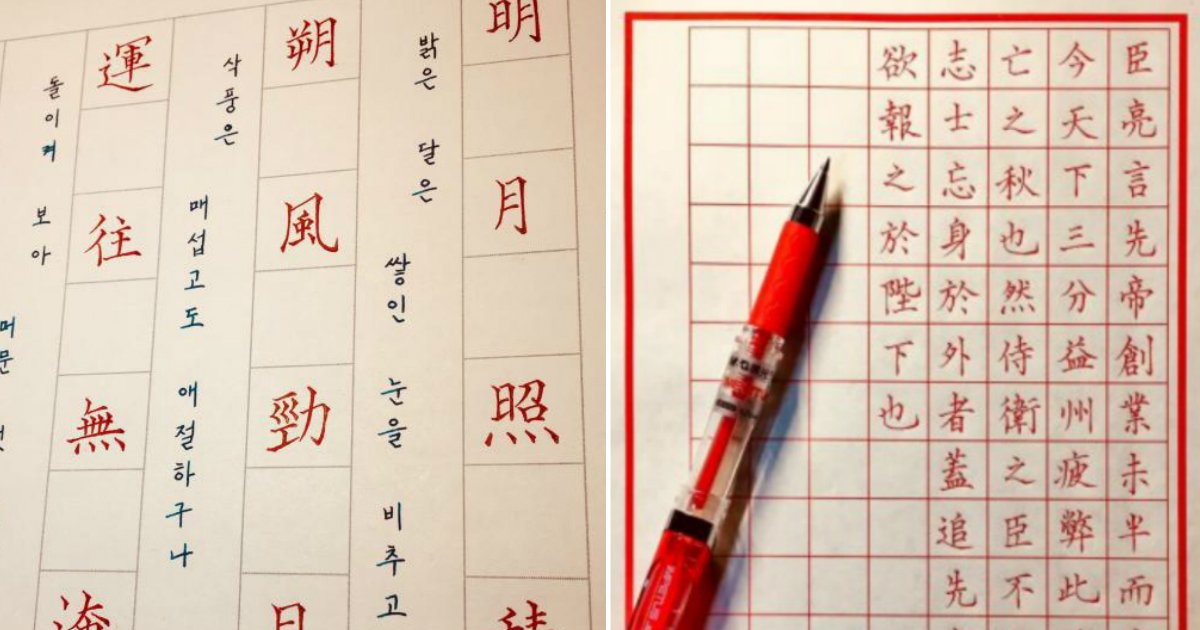 明月照
밝은 달은
쌓인 눈을 비추고
朔風勁
삭풍은
매섭고도 애절하구나
運往無
돌이켜 보아
머문
臣亮言先帝創業未半而
今天下三分益州疲弊此
亡之秋也然侍衛之臣不
志士忘身於外者蓋追先
欲報之於陛下也